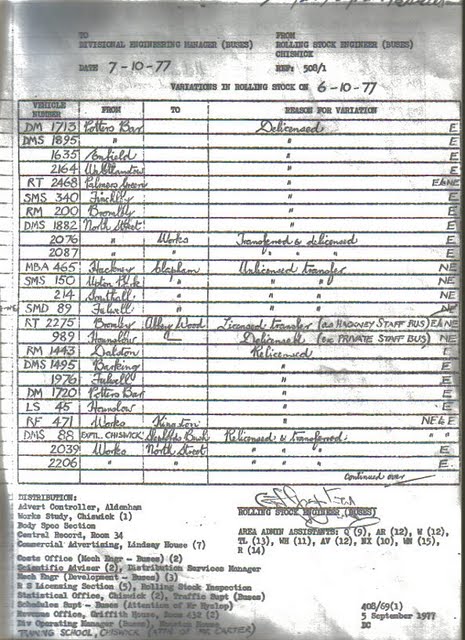 TO FROM
DIVISIONAL ENGINEERING MANAGER (BUSES) ROLLING STOCK ENGINEER (BUSES)
CHISWICK
DATE 7-10-77 REF: 508/1
VARIATIONS IN ROLLING STOCK ON 6-10-77
VEHICLE NUMBER FROM TO REASON FOR VARIATION
DM 1713 Potters Bar Delicensed E
DMS 1895 " " E
1635 Enfield " E
2164 Walthamstow " E
RT 2468 Palmers Green " E&NE
SMS 340 Finchley " E
RM 200 Bromley " E
DMS 1882 North Street " E
2076 " Works Transferred & delicensed E
2087 " " " " E
MBA 465 Hackney Clapham Unlicensed transfer NE
SMS 150 Upton Park " " " NE
214 Southall " " " NE
SMD 89 Fulwell " " " NE
RT 2275 Bromley Abbey Wood Licensed transfer (as HACKNEY STAFF BUS) E&NE
989 Hounslow Delicensed (ex PRIVATE STAFF BUS) NE
RM 1443 Dalston Relicensed E
DMS 1495 Barking " E
1976 Fulwell " E
DM 1720 Potters Bar " E
LS 45 Hounslow " E
RF 471 Works Kingston " NE&E
DMS 88 EXPTL. CHISWICK Shepherds Bush Relicensed & transferred " "
2039 Works North Street " " " E
2206 " " " " " E
Continued over
DISTRIBUTION:
ROLLING STOCK ENGINEER (BUSES)
Advert Controller, Aldenham
Works Study, Chiswick (1)
Body Spec Section
Central Record, Room 34
Commercial Advertising, Lindsey House (7)
AREA ADMIN ASSISTANTS: Q (9), AR (12), W (12),
TL (13), WH (11), AV (12), NX (10), UN (15),
R (14)
Costs Office (Mech Engr - Buses) (2)
Scientific Adviser (2), Distribution Services Manager
Mech Engr (Development - Buses) (3)
R S Licensing Section (5), Rolling Stock Inspection
Statistical Office, Chiswick (2), Traffic Supt (Buses)
Schedules Supt - Buses (Attention of Mr Hyslop)
Revenue Office, Griffith House, Room 432 (2)
Div Operating Manager (Buses),
TRAINING SCHOOL, CHISWICK (ATTN OF MR CARTER)
408/69(1)
5 September 1977